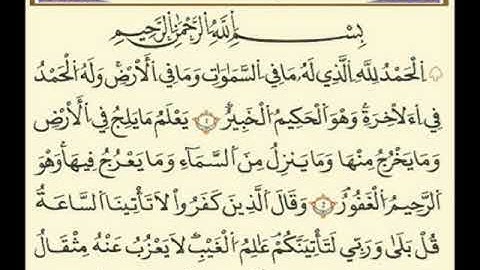 بِسْمِ اللَّهِ الرَّحْمَٰنِ الرَّحِيمِ
اَلْحَمْدُ لِلَّهِ الَّذِي لَهُ مَا فِي السَّمَٰوَٰتِ وَمَا فِي الْأَرْضِ وَلَهُ الْحَمْدُ
فِي اَءَلَاخِرَةِ وَهُوَ الْحَكِيمُ الْخَبِيرُ ١ يَعْلَمُ مَا يَلِجُ فِي الْأَرْضِ
وَمَا يَخْرُجُ مِنْهَا وَمَا يَنزِلُ مِنَ السَّمَاءِ وَمَا يَعْرُجُ فِيهَا وَهْوَ
الرَّحِيمُ الْغَفُورُ ٢ وَقَالَ الَّذِينَ كَفَرُوا لَا تَأْتِينَا السَّاعَةُ
قُلْ بَلَىٰ وَرَبِّي لَتَأْتِيَنَّكُمْ عَٰلِمُ الْغَيْبِ لَا يَعْزُبُ عَنْهُ مِثْقَالُ